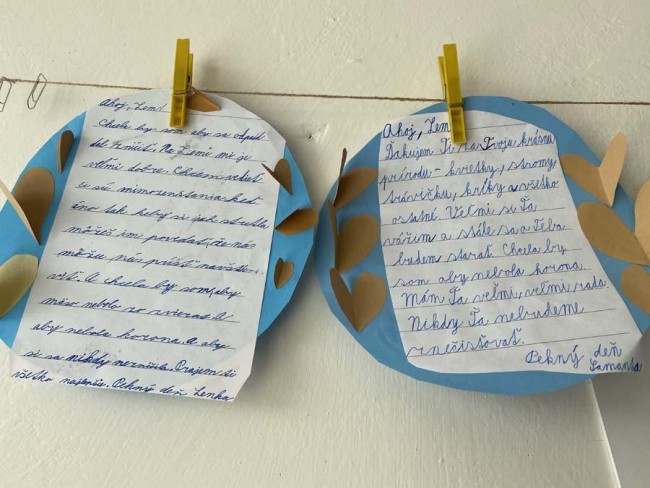 Ahoj, Zem!
Chcela by som aby sa odpad
dal zničiť. Na Zemi mi je
veľmi dobre. Chcem vedieť
či sú mimozemšťania keď
áno tak keby si ich stretla
môžeš im povedať, že nás
môžu prísť navštíviť.
A chcela by som, aby
mäso nebolo zo zvierat. A
aby nebola korona. A aby
si sa nikdy nezničila. Prajem ti
všetko najlepšie. Pekný deň Lenka
Ahoj, Zem
Ďakujem Ti za Tvoju krásnu
prírodu - kvietky, stromy
trávičku, kríčky a všetko
ostatné. Veľmi si Ťa
vážim a stále sa o Teba
budem starať. Chcela by
som aby nebola korona.
Mám Ťa veľmi, veľmi rada.
Nikdy Ťa nebudeme
znečisťovať.
Pekný deň
Samanta